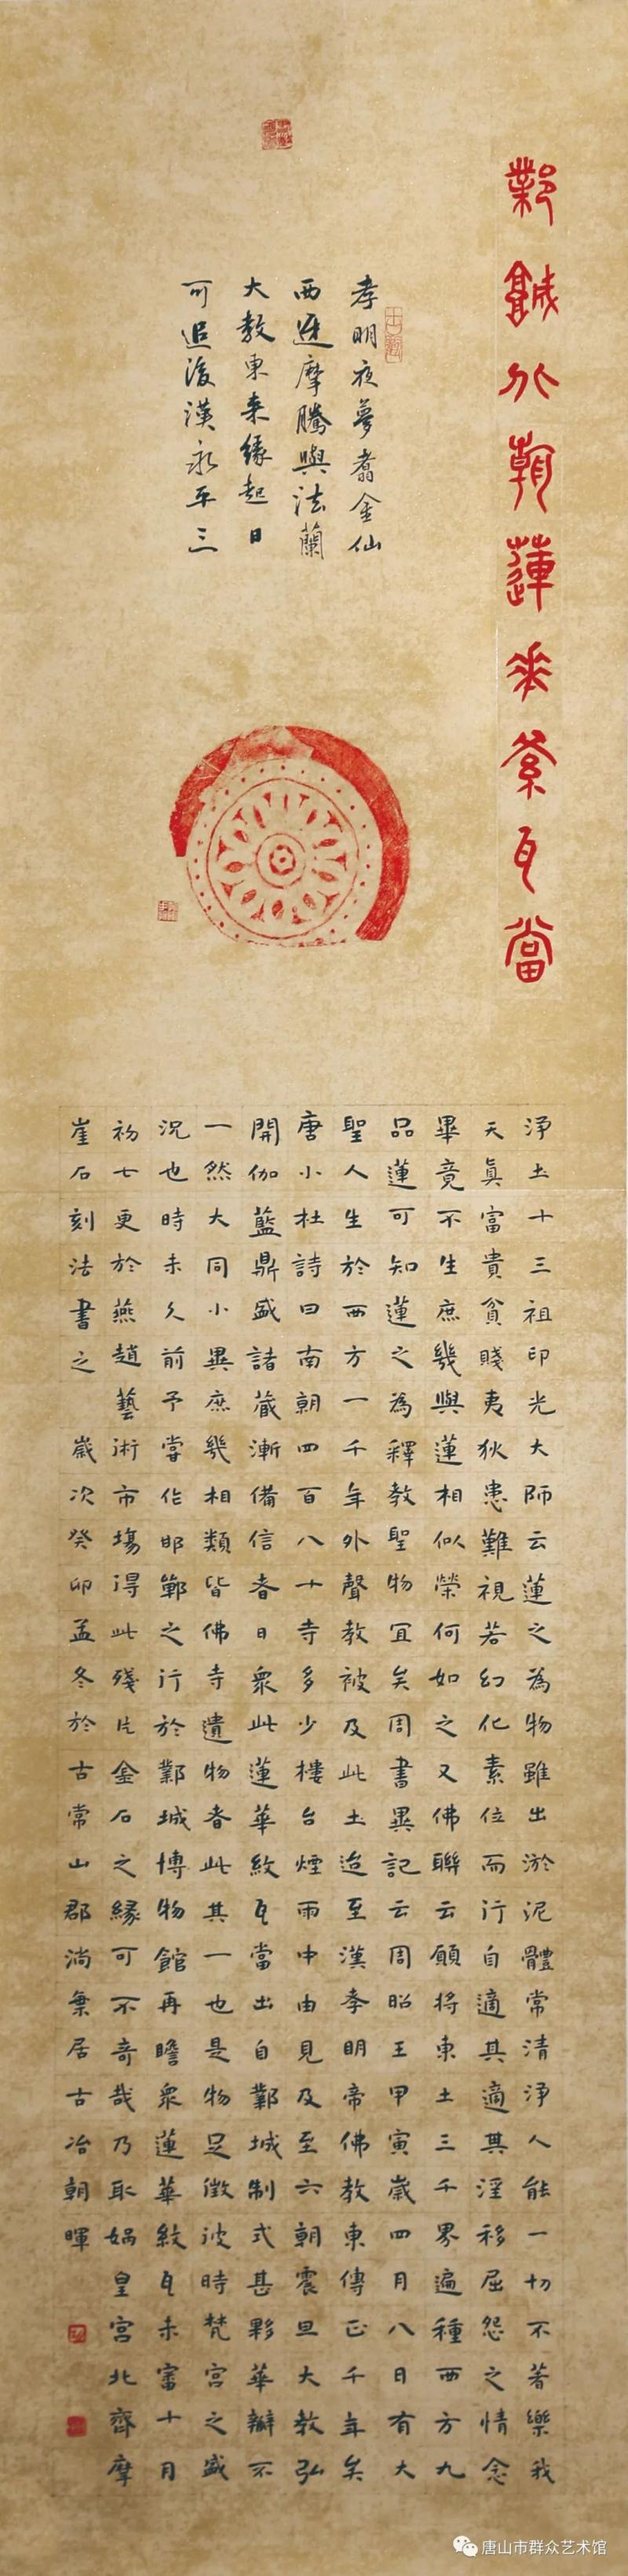 鄴城北朝蓮華紋瓦當
孝明夜夢翥金仙
西迓摩騰與法蘭
大教東來緣起日
可追後漢永平三
淨土十三祖印光大師云蓮之為物雖出淤泥體常清淨人能一切不著樂我
天真富貴貧賤夷狄患難視若幻化素位而行自適其適其淫移屈怨之情念
畢竟不生庶幾與蓮相似榮何如之又佛聯云願將東土三千界遍種西方九
品蓮可知蓮之為釋教聖物宜矣周書異記云周昭王甲寅歲四月八日有大
聖人生於西方一千年外聲教被及此土迨至漢孝明帝佛教東傳正千年矣
唐小杜詩曰南朝四百八十寺多少樓台煙雨中由見及至六朝震旦大教弘
開伽藍鼎盛諸藏漸備信者日眾此蓮華紋瓦當出自鄴城制式甚夥華瓣不
一然大同小異庶幾相類皆佛寺遺物者此其一也是物足徵彼時梵宮之盛
況也時未久前予嘗作邯鄲之行於鄴城博物館再瞻眾蓮華紋瓦未審十月
初七更於燕趙藝術市場得此殘片金石之緣可不奇哉乃取媧皇宮北齊摩
崖石刻法書之 歲次癸卯孟冬於古常山郡淌棄居古冶朝暉
唐山市群众艺术馆